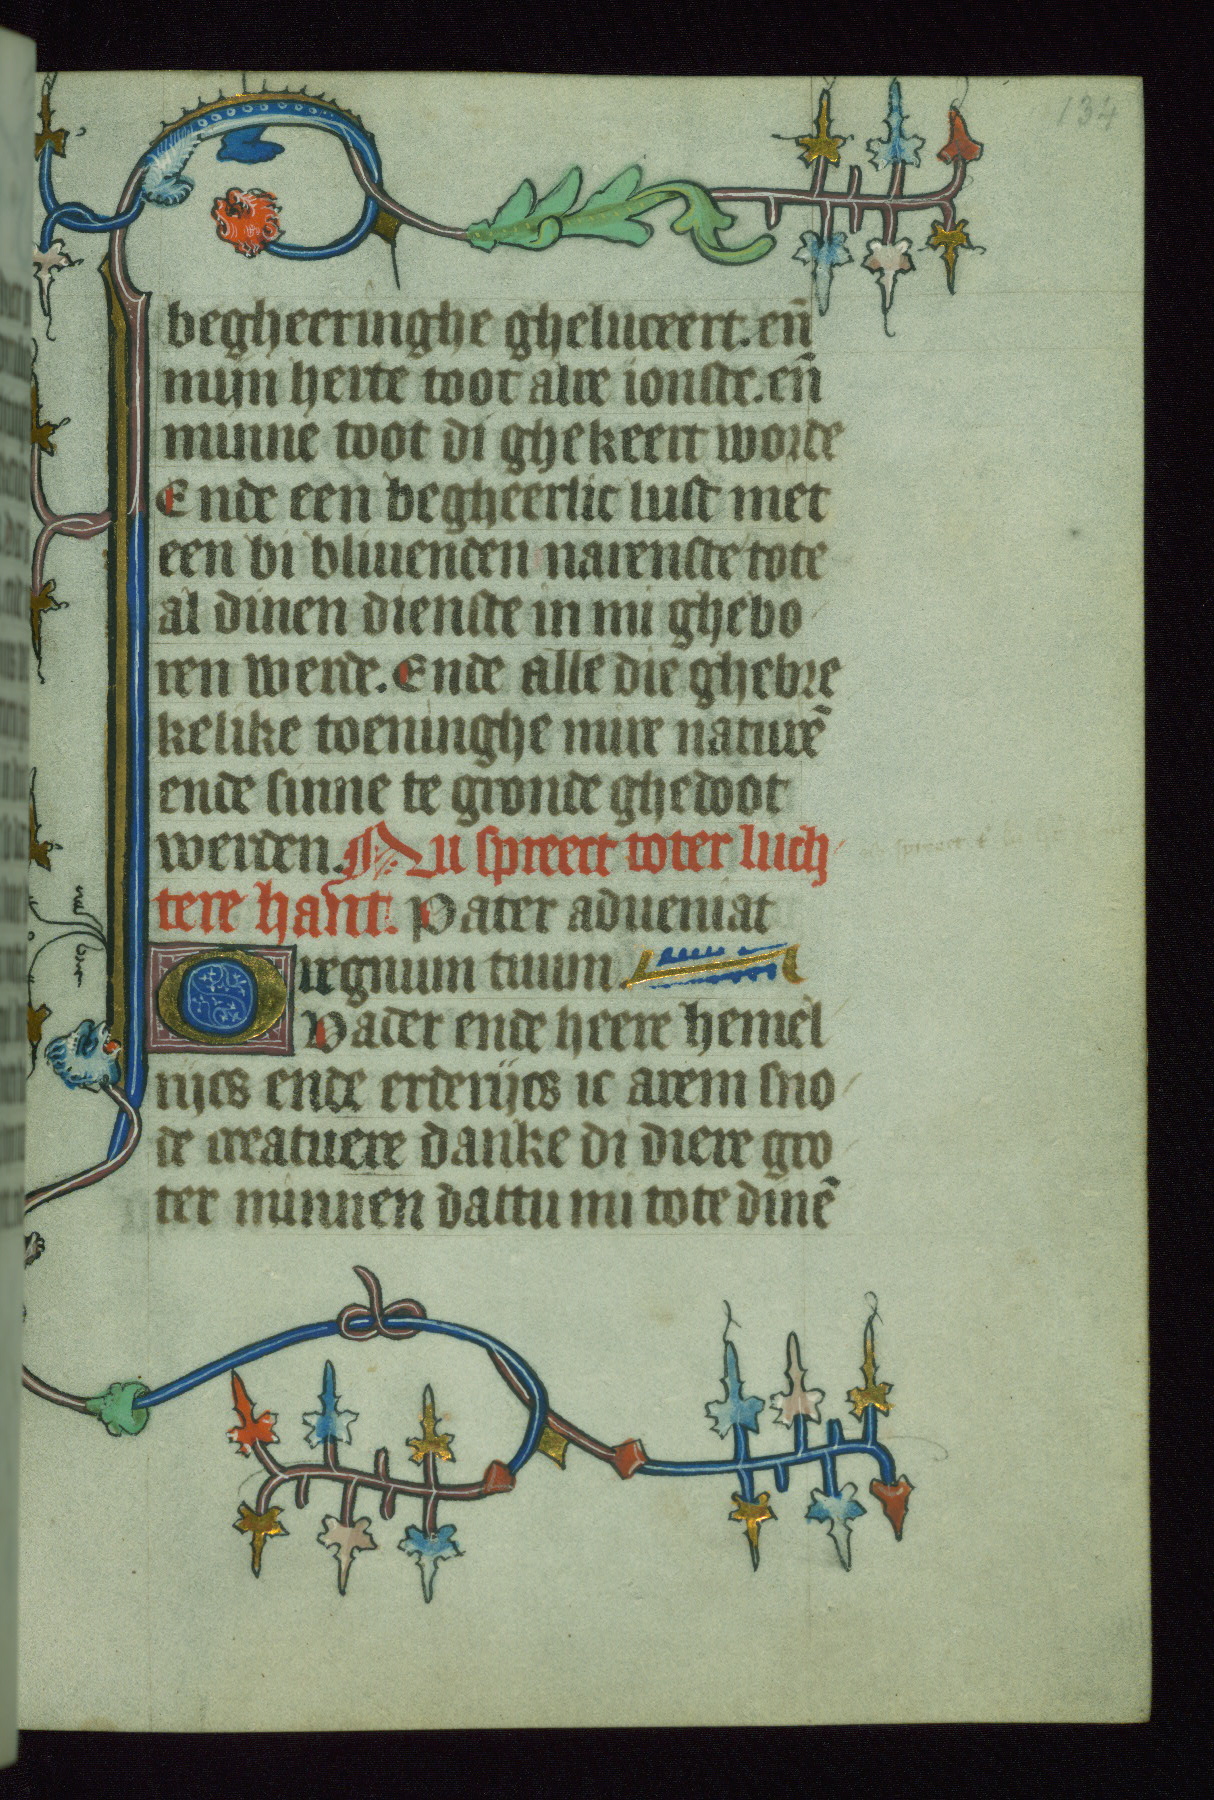 134
begheeringhe ghekeert. en̄
mijn herte toot alre ionste. en̄
minne toot di ghekeert worde
Ende een begheerlic lust met
een bi bliuenden narenste tote
al dinen dienste in mi ghebo
ren werde. Ende alle die ghebre
kelike toeninghe mire naturē
ende sinne te gronde ghedoot
werden. Nu spreect toter luch
tere hant. Pater adueniat
regnum tuum.
O Vader ende heere hemel
rijcs ende erderijcs ic arem sno
de creatuere danke di diere gro
ter minnen dattu mi tote dinē